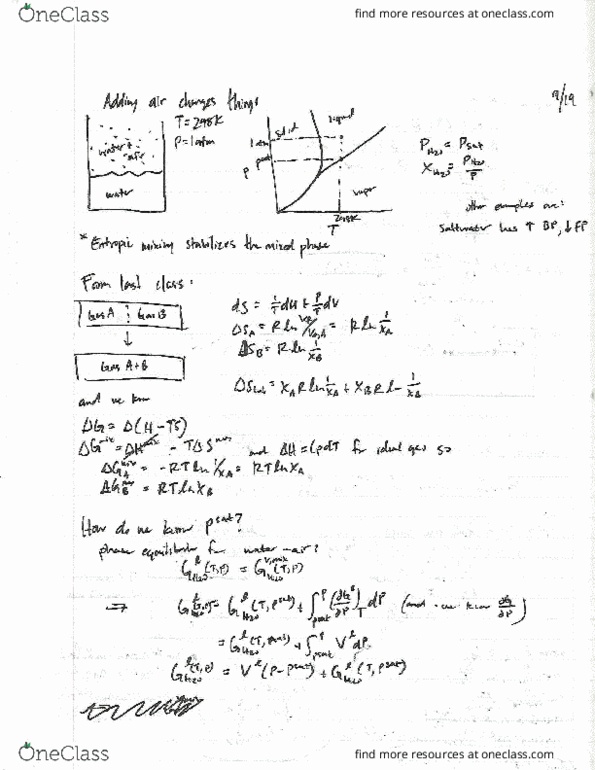 OneClass
find more resources at oneclass.com
9/19
Adding air changes things
T=298K
P=1atm
water + air
water
solid
liquid
vapor
1 atm
psat
P
298K
T
P_H2O = Psat
X_H2O = P_H2O/P
other examples are:
saltwater has ↑ BP, ↓ FP
* Entropic mixing stabilizes the mixed phase
From last class:
Gas A | Gas B
↓
Gas A+B
dS = 1/T dU + P/T dV
ΔS_A = R ln V_B/V_A,A = R ln 1/X_A
ΔS_B = R ln 1/X_B
ΔS_tot = X_A R ln 1/X_A + X_B R ln 1/X_A
and we know
ΔG = Δ(H-TS)
ΔG^mix = ΔH^mix - TΔS^mix and ΔH = CpdT for ideal gas so
ΔG_A^mix = -RT ln 1/X_A = RT ln X_A
ΔG_B^mix = RT ln X_B
How do we know P^sat?
phase equilibrium for water-air?
G_H2O^l (T,P) = G_H2O^v,mix (T,P)
⇒ G_H2O^l (T,P) = G_H2O^l (T,P^sat) + ∫_psat^P (∂G^l/∂P)_T dP (and we know ∂G/∂P)
= G_H2O^l (T,Psat) + ∫_psat^P V^l dP
G_H2O^l (T,P) = V^l (P-P^sat) + G_H2O^l (T,P^sat)
OneClass
find more resources at oneclass.com